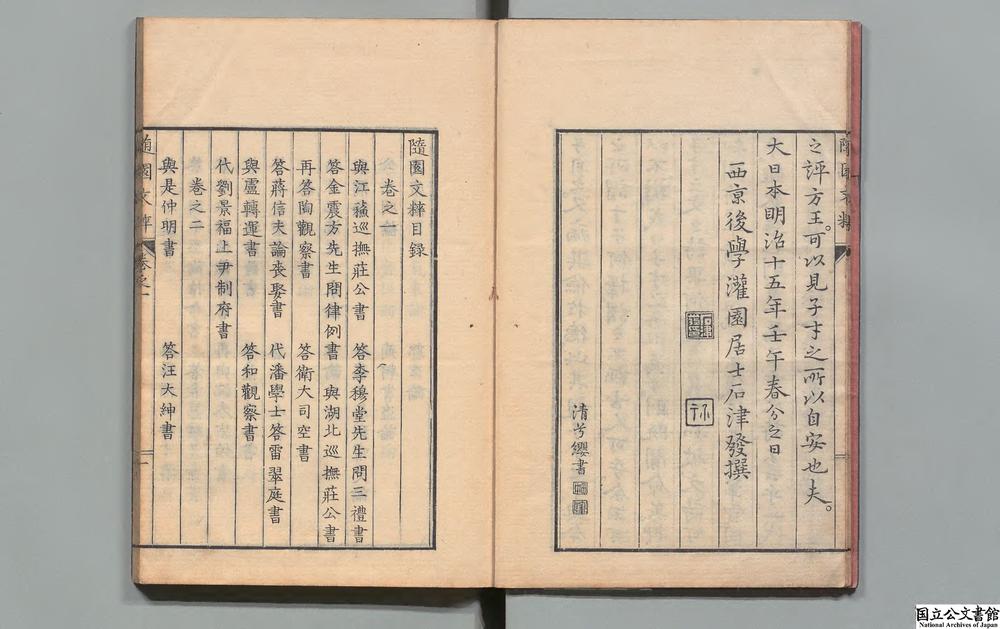 之評方王。可以見子才之所以自安也夫。
大日本明治十五年壬午春分之日
西京後學灌園居士石津發撰
清兮纓書
隨園文粹目録
卷之一
與江蘇巡撫莊公書 答李穆堂先生問三禮書
答金震方先生問律例書 與湖北巡撫莊公書
再答陶觀察書 答衛大司空書
答蔣信夫論喪娶書 代潘學士答雷翠庭書
與盧轉運書 答和觀察書
代劉景福上尹制府書
卷之二
與是仲明書 答汪大紳書
隨園文粹 卷之一 一
国立公文書館
National Archives of Japan